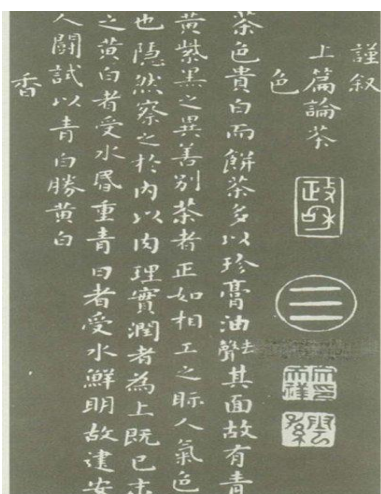 謹叙
上篇論茶
政和
色
茶色貴白而餅茶多以珍膏油去聲其面故有青
黃紫黑之異善別茶者正如相工之眎人氣色
也隱然察之於內以肉理實潤者為上既已末
之黃白者受水昏重青白者受水鮮明故建安
人鬪試以青白勝黃白
香